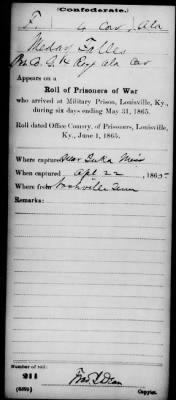 (Confederate.)
F. 4 Cav. Ala
Roll of Prisoners of War
Appears on a
Roll of Prisoners of War
who arrived at Military Prison, Louisville, Ky.,
during six days ending May 31, 1865.
Roll dated Office Comsry. of Prisoners, Louisville,
Ky., June 1, 1865.
Where captured Near Iuka Miss
When captured Apl 22, 1865.
Where from Nashville Tenn
Remarks:
Number of roll:
211
(639b)
Copyist.